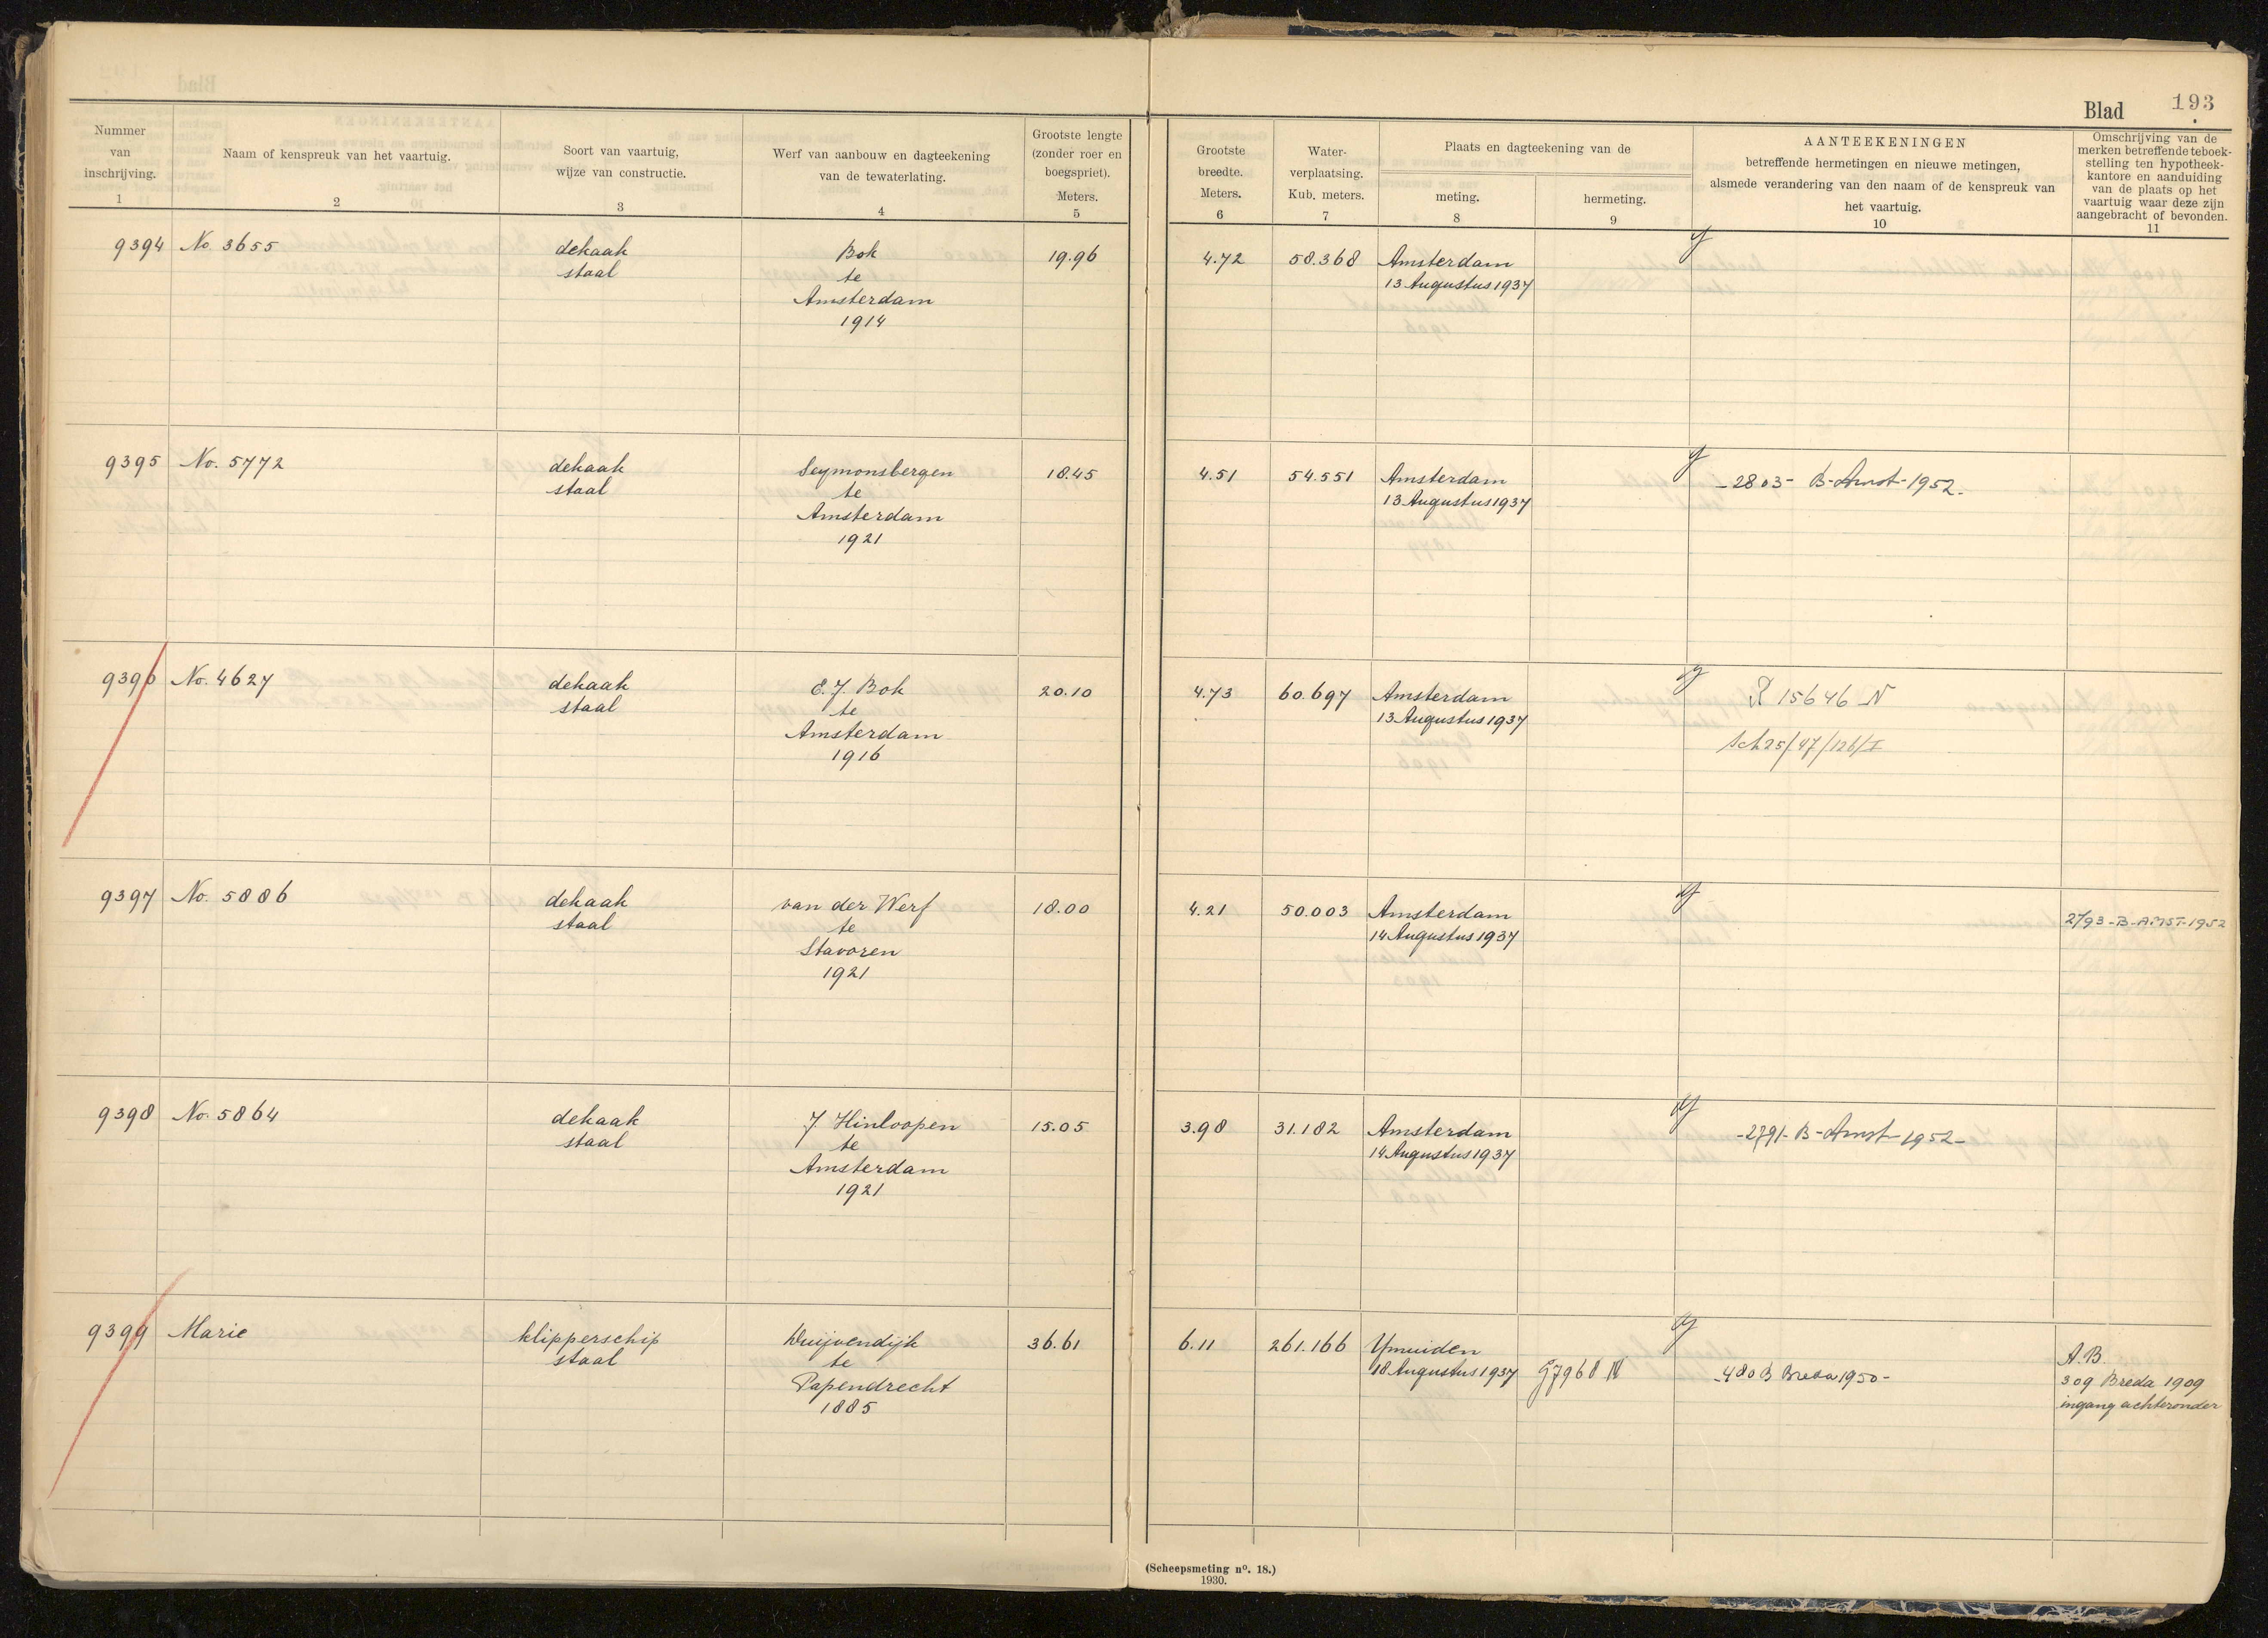 Blad 193
Nummer
van
inschrijving.
1
Naam of kenspreuk van het vaartuig.
2
Soort van vaartuig,
wijze van constructie.
3
Werf van aanbouw en dagteekening
van de tewaterlating.
4
Grootste lengte
(zonder roer en
boegspriet).
Meters.
5
Grootste
breedte.
Meters.
6
Water-
verplaatsing.
Kub. meters.
7
Plaats en dagteekening van de
meting.
8
hermeting.
9
AANTEEKENINGEN
betreffende hermetingen en nieuwe metingen,
alsmede verandering van den naam of de kenspreuk van
het vaartuig.
10
Omschrijving van de
merken betreffende teboek-
stelling ten hypotheek-
kantore en aanduiding
van de plaats op het
vaartuig waar deze zijn
aangebracht of bevonden.
11
9394 No. 3655
dekaak
staal
Bok
te
Amsterdam
1914
19.96
4.72
58.368
Amsterdam
13 Augustus 1937
9395 No. 5772
dekaak
staal
Seymonsbergen
te
Amsterdam
1921
18.45
4.51
54.551
Amsterdam
13 Augustus 1937
-2803- B-Amst-1952.
9396 No. 4627
dekaak
staal
E.J. Bok
te
Amsterdam
1916
20.10
4.73
60.697
Amsterdam
13 Augustus 1937
R 15646 N
Sch25/47/126/I
9397 No. 5886
dekaak
staal
van der Werf
te
Stavoren
1921
18.00
4.21
50.003
Amsterdam
14 Augustus 1937
2793-B-AMST-1952
9398 No. 5864
dekaak
staal
J. Hinloopen
te
Amsterdam
1921
15.05
3.98
31.182
Amsterdam
14 Augustus 1937
-2791-B-Amst-1952-
9399 Marie
klipperschip
staal
Wuijvendijk
te
Papendrecht
1885
36.61
6.11
261.166
Ymuiden
18 Augustus 1937
G7968 N
-480 B Breda 1950-
A.B.
309 Breda 1909
ingang achteronder
(Scheepsmeting no. 18.)
1930.